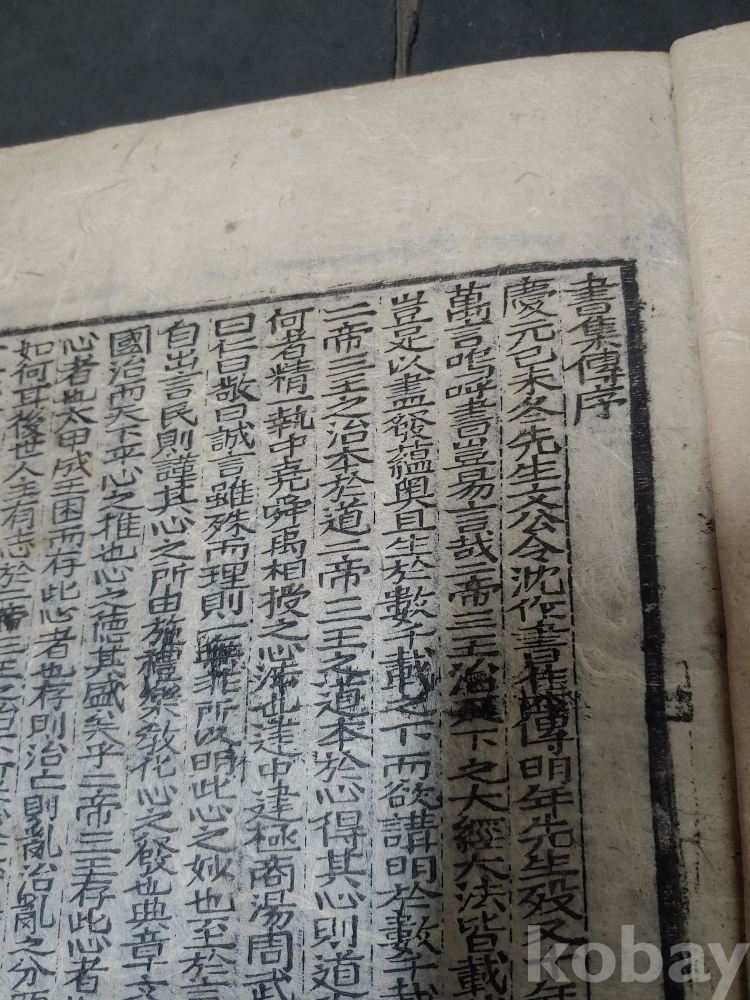 書集傳序
慶元己未冬先生文公令沈作書集傳明年先生歿又
萬言嗚呼書豈易言哉二帝三王治天下之大經大法皆載
豈足以盡發蘊奧且生於數千載之下而欲講明於數千載
二帝三王之治本於道二帝三王之道本於心得其心則道
何者精一執中堯舜禹相授之心法也建中建極商湯周武
曰仁曰敬曰誠言雖殊而理則一無非所以明此心之妙也至於言
自出言民則謹其心之所由施禮樂敎化心之發也典章文
國治而天下平心之推也心之德其盛矣乎二帝三王存此心者
心者也太甲成王困而存此心者也存則治亡則亂治亂之分
如何耳後世人主有志於二帝三王之治
kobay